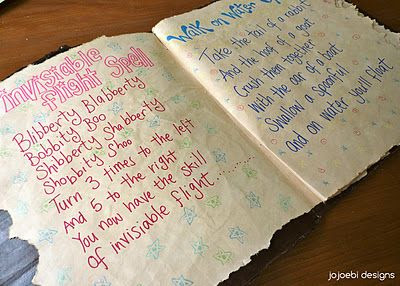 invisiable
flight Spell
Blibberty Blabberty
Bobbity Boo
Shibberty Shabberty
Shobbity Shoo
Turn 3 times to the left
And 5 to the right
You now have the skill
Of invisiable flight
Walk on Water
Take the tail of a rabbit
And the hoof of a goat
Crush them together
With the oar of a boat
Swallow a spoonful
and on water you'll float
jojoebi designs